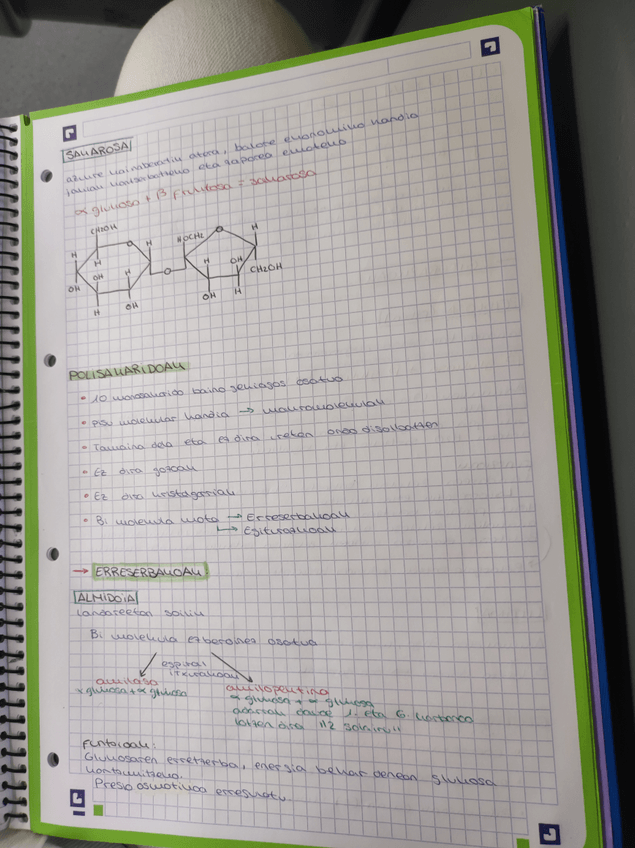 SAKAROSA
azukre kainaberatik atera, balore ekonomiko handia
janak kontserbatzeko eta zaporea emateko
α glukosa + β fruktosa = sakarosa
CH2OH
H
O
H
H
OH
H
OH
H
OH
O
HOCH2
O
H
H
OH
CH2OH
OH
H
POLISAKARIDOAK
• 10 monosakarido baino gehiagoz osatua
• Pisu molekular handia → makromolekulak
• Tamaina dela eta ez dira uretan ondo disolbatzen
• Ez dira gozoak
• Ez dira kristalgarriak
• Bi molekula mota → Erreserbakoak
→ Egiturazkoak
→ ERRESERBAKOAK:
ALMIDOIA
Landareetan soilik
Bi molekula ezberdinez osatua
espiral
itxurakoak
amilosa
amilopektina
α glukosa + α glukosa
α glukosa + α glukosa
adarrak daude 1. eta 6. karbonoa
lotzen dira
Funtzioak:
Glukosaren erretserba, energia behar denean glukosa
kontsumitzeko.
Presio osmotikoa erregulatu.